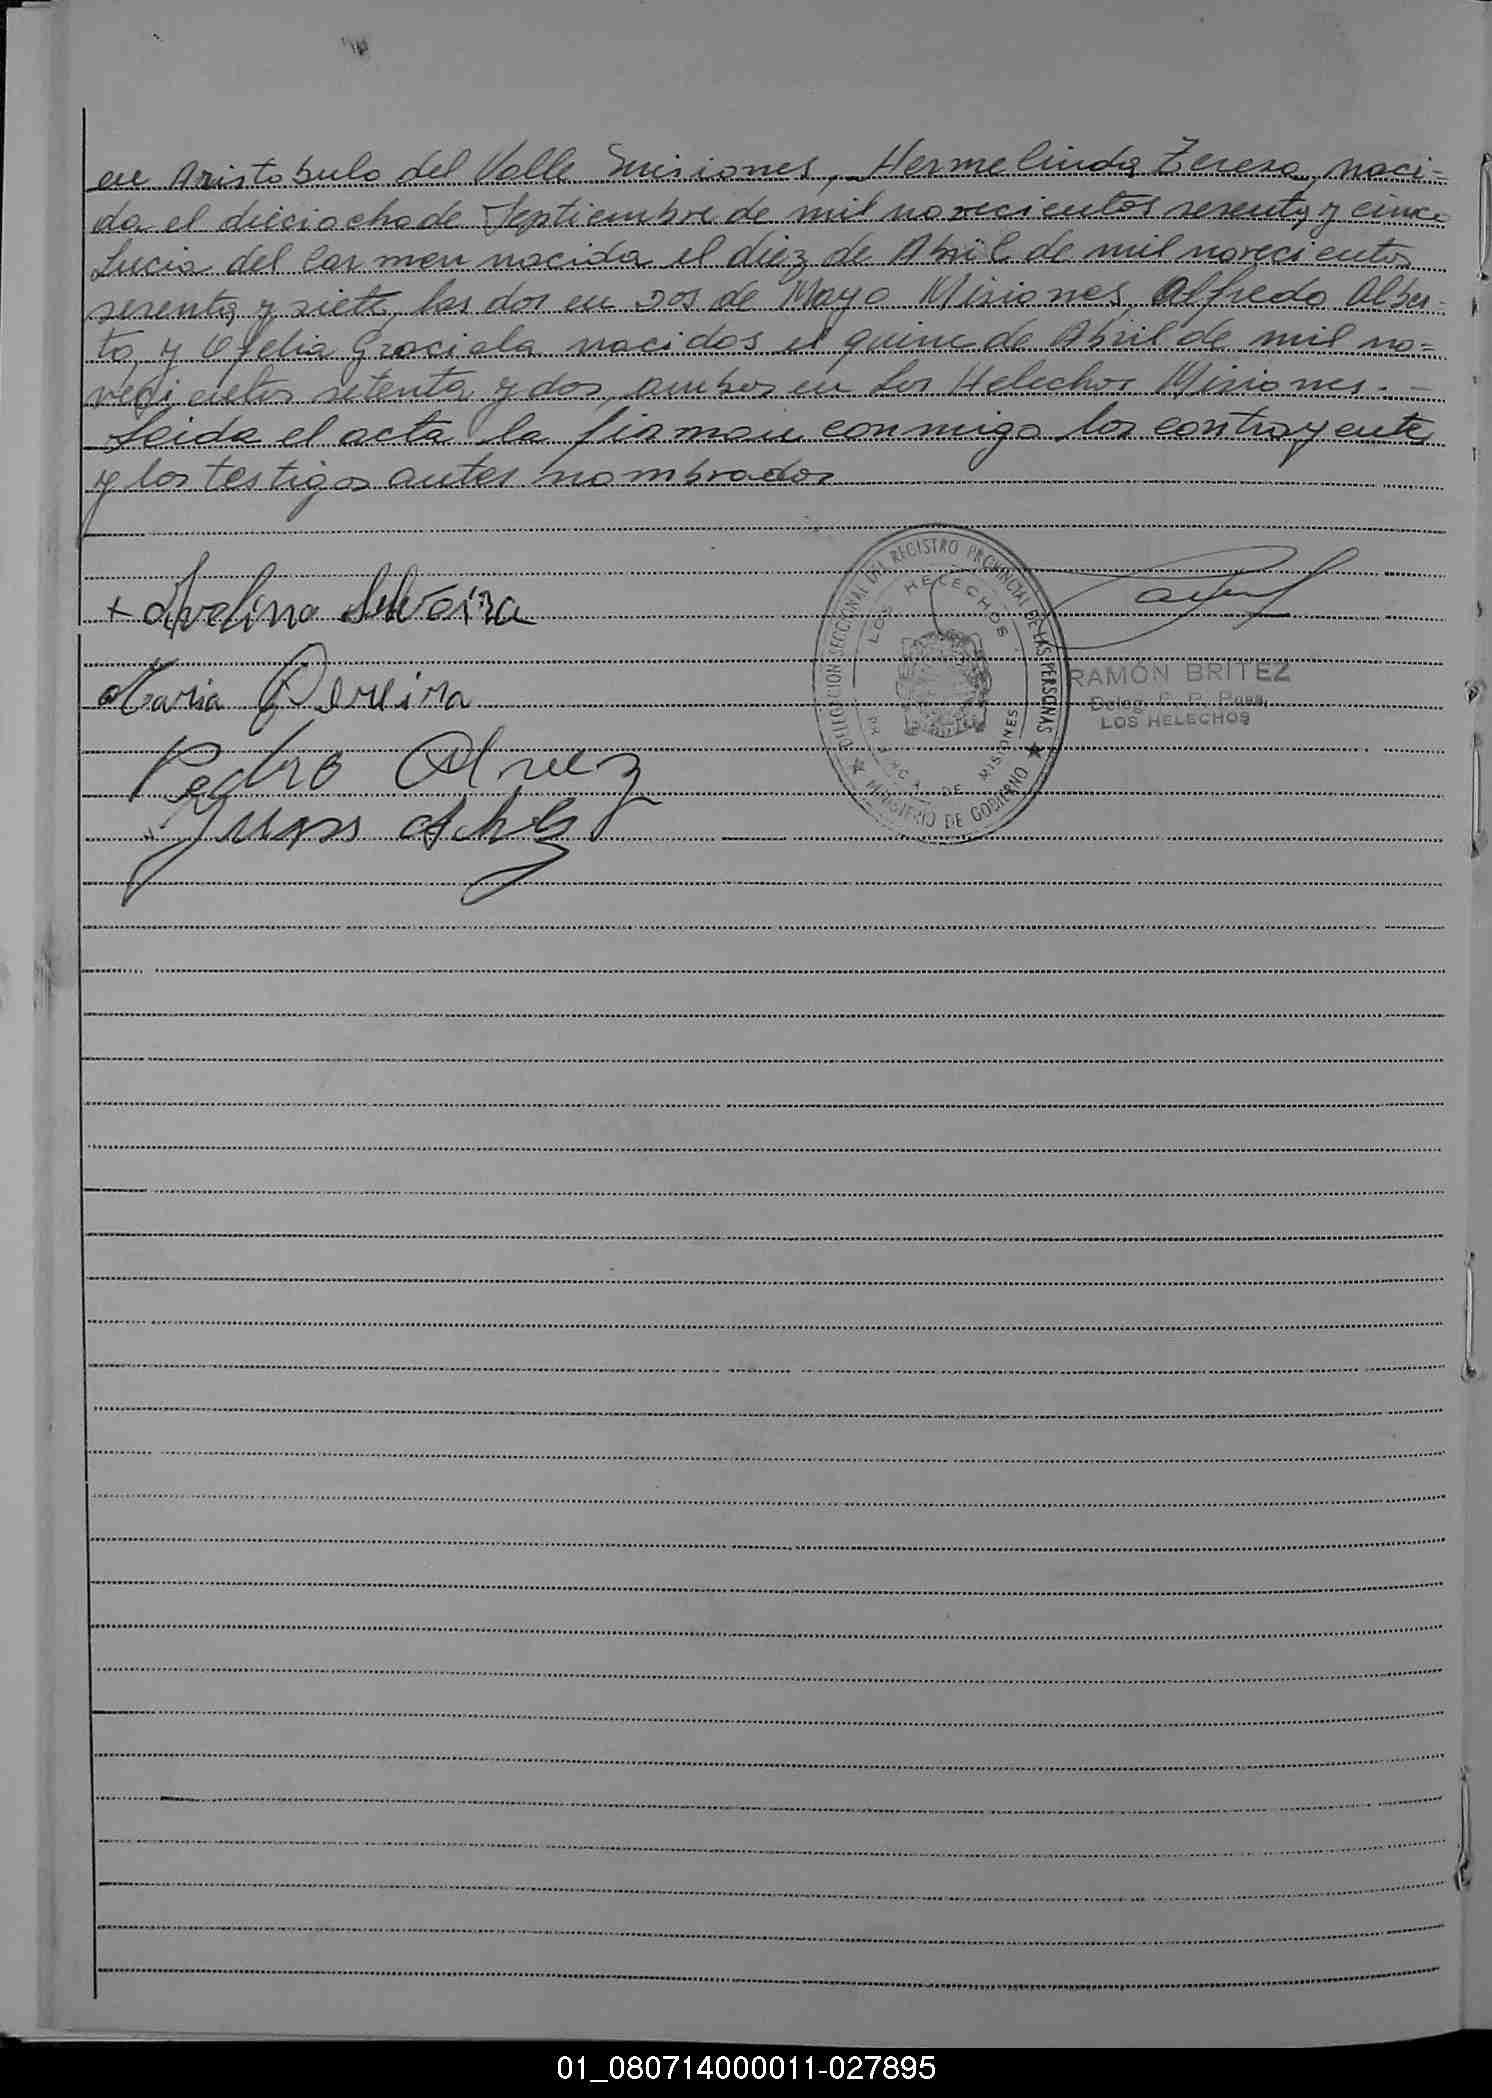 en Aristobulo del Valle Misiones, Hermelinda Teresa, naci=
da el dieciocho de Septiembre de mil novecientos sesenta y cinco
Lucia del Carmen nacida el diez de Abril de mil novecientos
sesenta y siete, las dos en Dos de Mayo Misiones, Alfredo Alber-
to, y Ofelia Graciela nacidos el quince de Abril de mil no=
vecientos setenta y dos, ambos en Los Helechos Misiones.-
Leida el acta la firman conmigo los contrayentes
y los testigos antes nombrados
DELEGACION SECCIONAL DEL REGISTRO PROVINCIAL DE LAS PERSONAS
LOS HELECHOS
PROVINCIA DE MISIONES
★ MINISTERIO DE GOBIERNO ★
+ Avelino Silveira
RAMÓN BRITEZ
Deleg. R. P. Pers.
LOS HELECHOS
Maria Pereira
Pedro Alvez
01_080714000011-027895